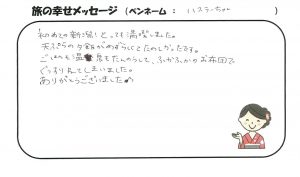 旅の幸せメッセージ（ペンネーム： ハスラーちゅー ）
初めての新潟！とっても満喫しました。
天ぷらの夕飯がめずらしくとたのしかったです。
ごはんも温泉もたんのうして、ふかふかのお布団で
ぐっすりねてしまいました。
ありがとうございました